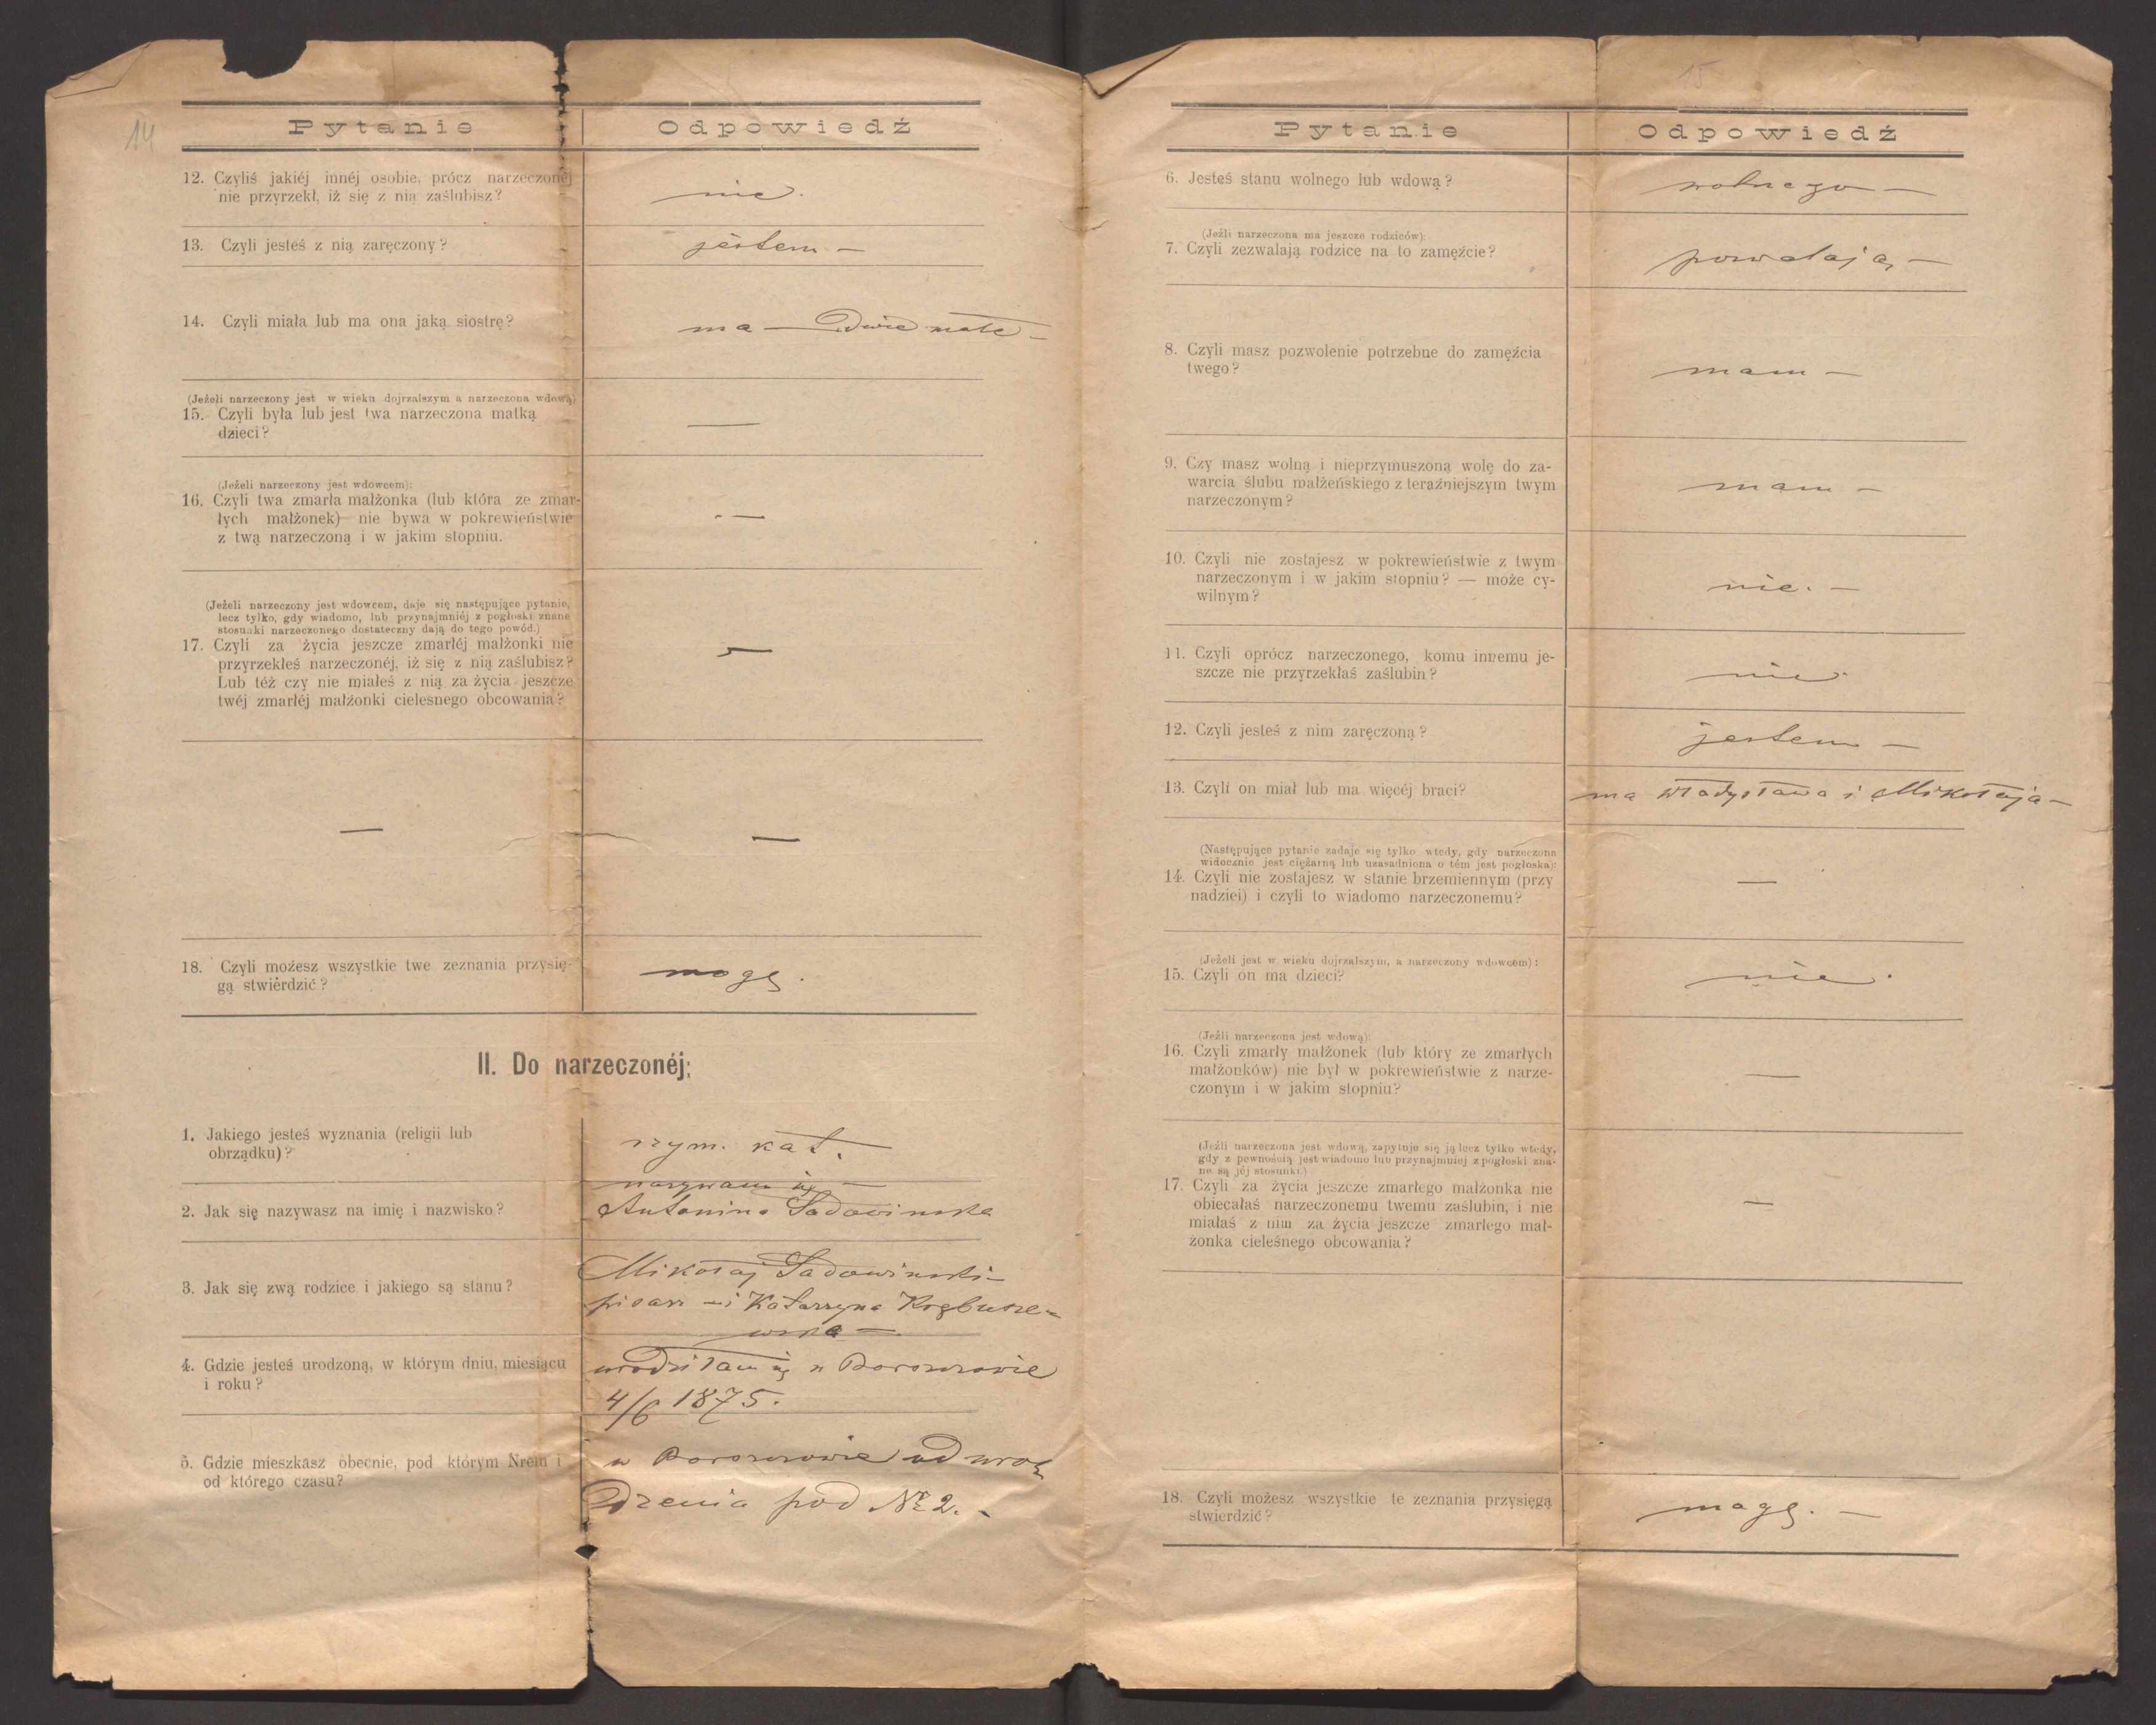 14
Pytanie
Odpowiedź
12. Czyliś jakiéj innéj osobie, prócz narzeczonéj
nie przyrzekł, iż się z nią zaślubisz?
nie.
13. Czyli jesteś z nią zaręczony?
jestem —
14. Czyli miała lub ma ona jaką siostrę?
ma — Dwie małe —
(Jeżeli narzeczony jest w wieku dojrzalszym a narzeczona wdową)
15. Czyli była lub jest twa narzeczona matką
dzieci?
—
(Jeżeli narzeczony jest wdowcem):
16. Czyli twa zmarła małżonka (lub która ze zmar-
łych małżonek) nie bywa w pokrewieństwie
z twą narzeczoną i w jakim stopniu.
—
(Jeżeli narzeczony jest wdowcem, daje się następujące pytanie,
lecz tylko, gdy wiadomo, lub przynajmniéj z pogłoski znane
stosunki narzeczonego dostateczny dają do tego powód.)
17. Czyli za życia jeszcze zmarłéj małżonki nie
przyrzekłeś narzeczonéj, iż się z nią zaślubisz?
Lub téż czy nie miałeś z nią za życia jeszcze
twéj zmarłéj małżonki cielesnego obcowania?
—
— —
18. Czyli możesz wszystkie twe zeznania przysię-
gą stwierdzić?
mogę.
II. Do narzeczonéj:
1. Jakiego jesteś wyznania (religii lub
obrządku)?
rzym. kat.
2. Jak się nazywasz na imię i nazwisko?
nazywam się —
Antonina Sadowinska
3. Jak się zwą rodzice i jakiego są stanu?
Mikołaj Sadowinski —
pisarz — i Katarzyna
wska —
4. Gdzie jesteś urodzoną, w którym dniu, miesiącu
i roku?
urodziłam się w
4/6 1875.
5. Gdzie mieszkasz obecnie, pod którym Nrem i
od którego czasu?
w od uro
dzenia pod № 2. —
15
Pytanie
Odpowiedź
6. Jesteś stanu wolnego lub wdową?
wolnego —
(Jeźli narzeczona ma jeszcze rodziców):
7. Czyli zezwalają rodzice na to zamęźcie?
pozwalają —
8. Czyli masz pozwolenie potrzebne do zamęźcia
twego?
mam —
9. Czy masz wolną i nieprzymuszoną wolę do za-
warcia ślubu małżeńskiego z teraźniejszym twym
narzeczonym?
mam —
10. Czyli nie zostajesz w pokrewieństwie z twym
narzeczonym i w jakim stopniu? — może cy-
wilnym?
nie. —
11. Czyli oprócz narzeczonego, komu innemu je-
szcze nie przyrzekłaś zaślubin?
nie.
12. Czyli jesteś z nim zaręczoną?
jestem —
13. Czyli on miał lub ma więcéj braci?
ma Władysława i Mikołaja —
(Następujące pytanie zadaje się tylko wtedy, gdy narzeczona
widocznie jest ciężarną lub uzasadniona o tém jest pogłoska):
14. Czyli nie zostajesz w stanie brzemiennym (przy
nadziei) i czyli to wiadomo narzeczonemu?
—
(Jeżeli jest w wieku dojrzalszym, a narzeczony wdowcem):
15. Czyli on ma dzieci?
nie.
(Jeźli narzeczona jest wdową):
16. Czyli zmarły małżonek (lub który ze zmarłych
małżonków) nie był w pokrewieństwie z narze-
czonym i w jakim stopniu?
—
(Jeźli narzeczona jest wdową, zapytuje się ją lecz tylko wtedy,
gdy z pewnością jest wiadomo lub przynajmniej z pogłoski zna-
ne są jéj stosunki.)
17. Czyli za życia jeszcze zmarłego małżonka nie
obiecałaś narzeczonemu twemu zaślubin, i nie
miałaś z nim za życia jeszcze zmarłego mał-
żonka cieleśnego obcowania?
—
18. Czyli możesz wszystkie te zeznania przysięgą
stwierdzić?
mogę. —